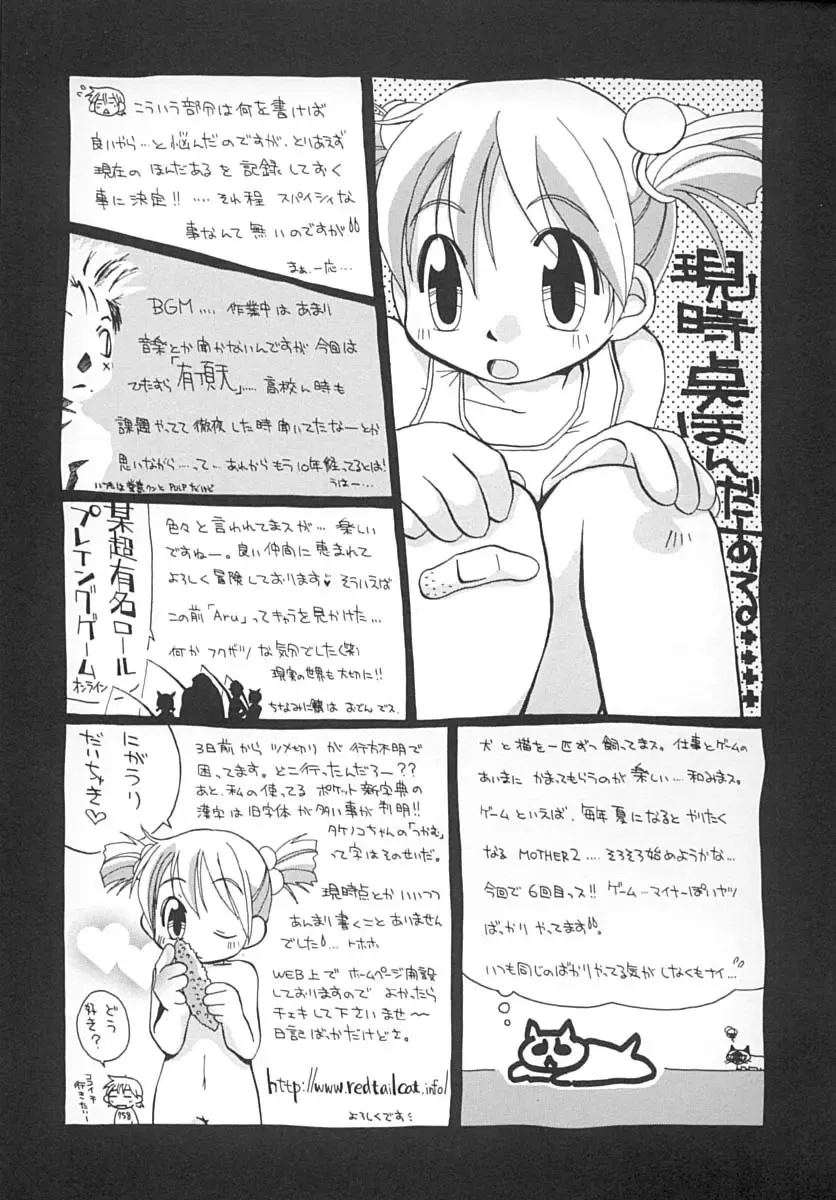 現時点ほんだある・・・・
こういう部分は何を書けば
良いやら…と悩んだのですが、とりあえず
現在のほんだあるを記録しておく
事に決定!!‥‥それ程スパイシィな
事なんて無いのですが
まぁ、一応…
BGM‥‥作業中はあまり
音楽とか聞かないんですが今回は
ひたすら「有頂天」‥‥高校ん時も
課題やってて徹夜した時聞いてたなーとか
思いながら…って…あれからもう10年経ってるとは!
うはー…
某超有名ロール
プレイングゲーム
オンライン
色々と言われてまスが…楽しい
ですねー。良い仲間に恵まれて
よろしく冒険しております♥そういえば
この前「Aru」ってキャラを見かけた…
何かフクザツな気分でした(笑)
現実の世界も大切に!!
ちなみに鯖はおでんでス.
犬と猫を一匹ずつ飼ってまス。仕事とゲームの
あいまにかまってもらうのが楽しい…和みまス。
ゲームといえば、毎年夏になるとやりたく
なるMOTHER2‥‥そろそろ始めようかな…
今回で6回目っス!!ゲーム…マイナーぽいヤツ
ばっかりやってます
いつも同じのばかりやってる気がしなくもナイ…
にがうり
だいちゅき♡
3日前からツメ切りが行方不明で
困ってます。どこ行ったんだろー??
あと、私の使ってるポケット新字典の
漢字は旧字体が多い事が判明!!
タケノコちゃんの「つかむ」
って字はそのせいだ。
現時点とかいいつつ
あんまり書くことありません
でした!…トホホ
WEB上でホームページ開設
しておりますのでよかったら
チェキして下さいませ〜
日記ばっかだけどさ。
http://www.redtailcat.info/
よろしくです
どう
好き?
ココイチ
行きたいー
758